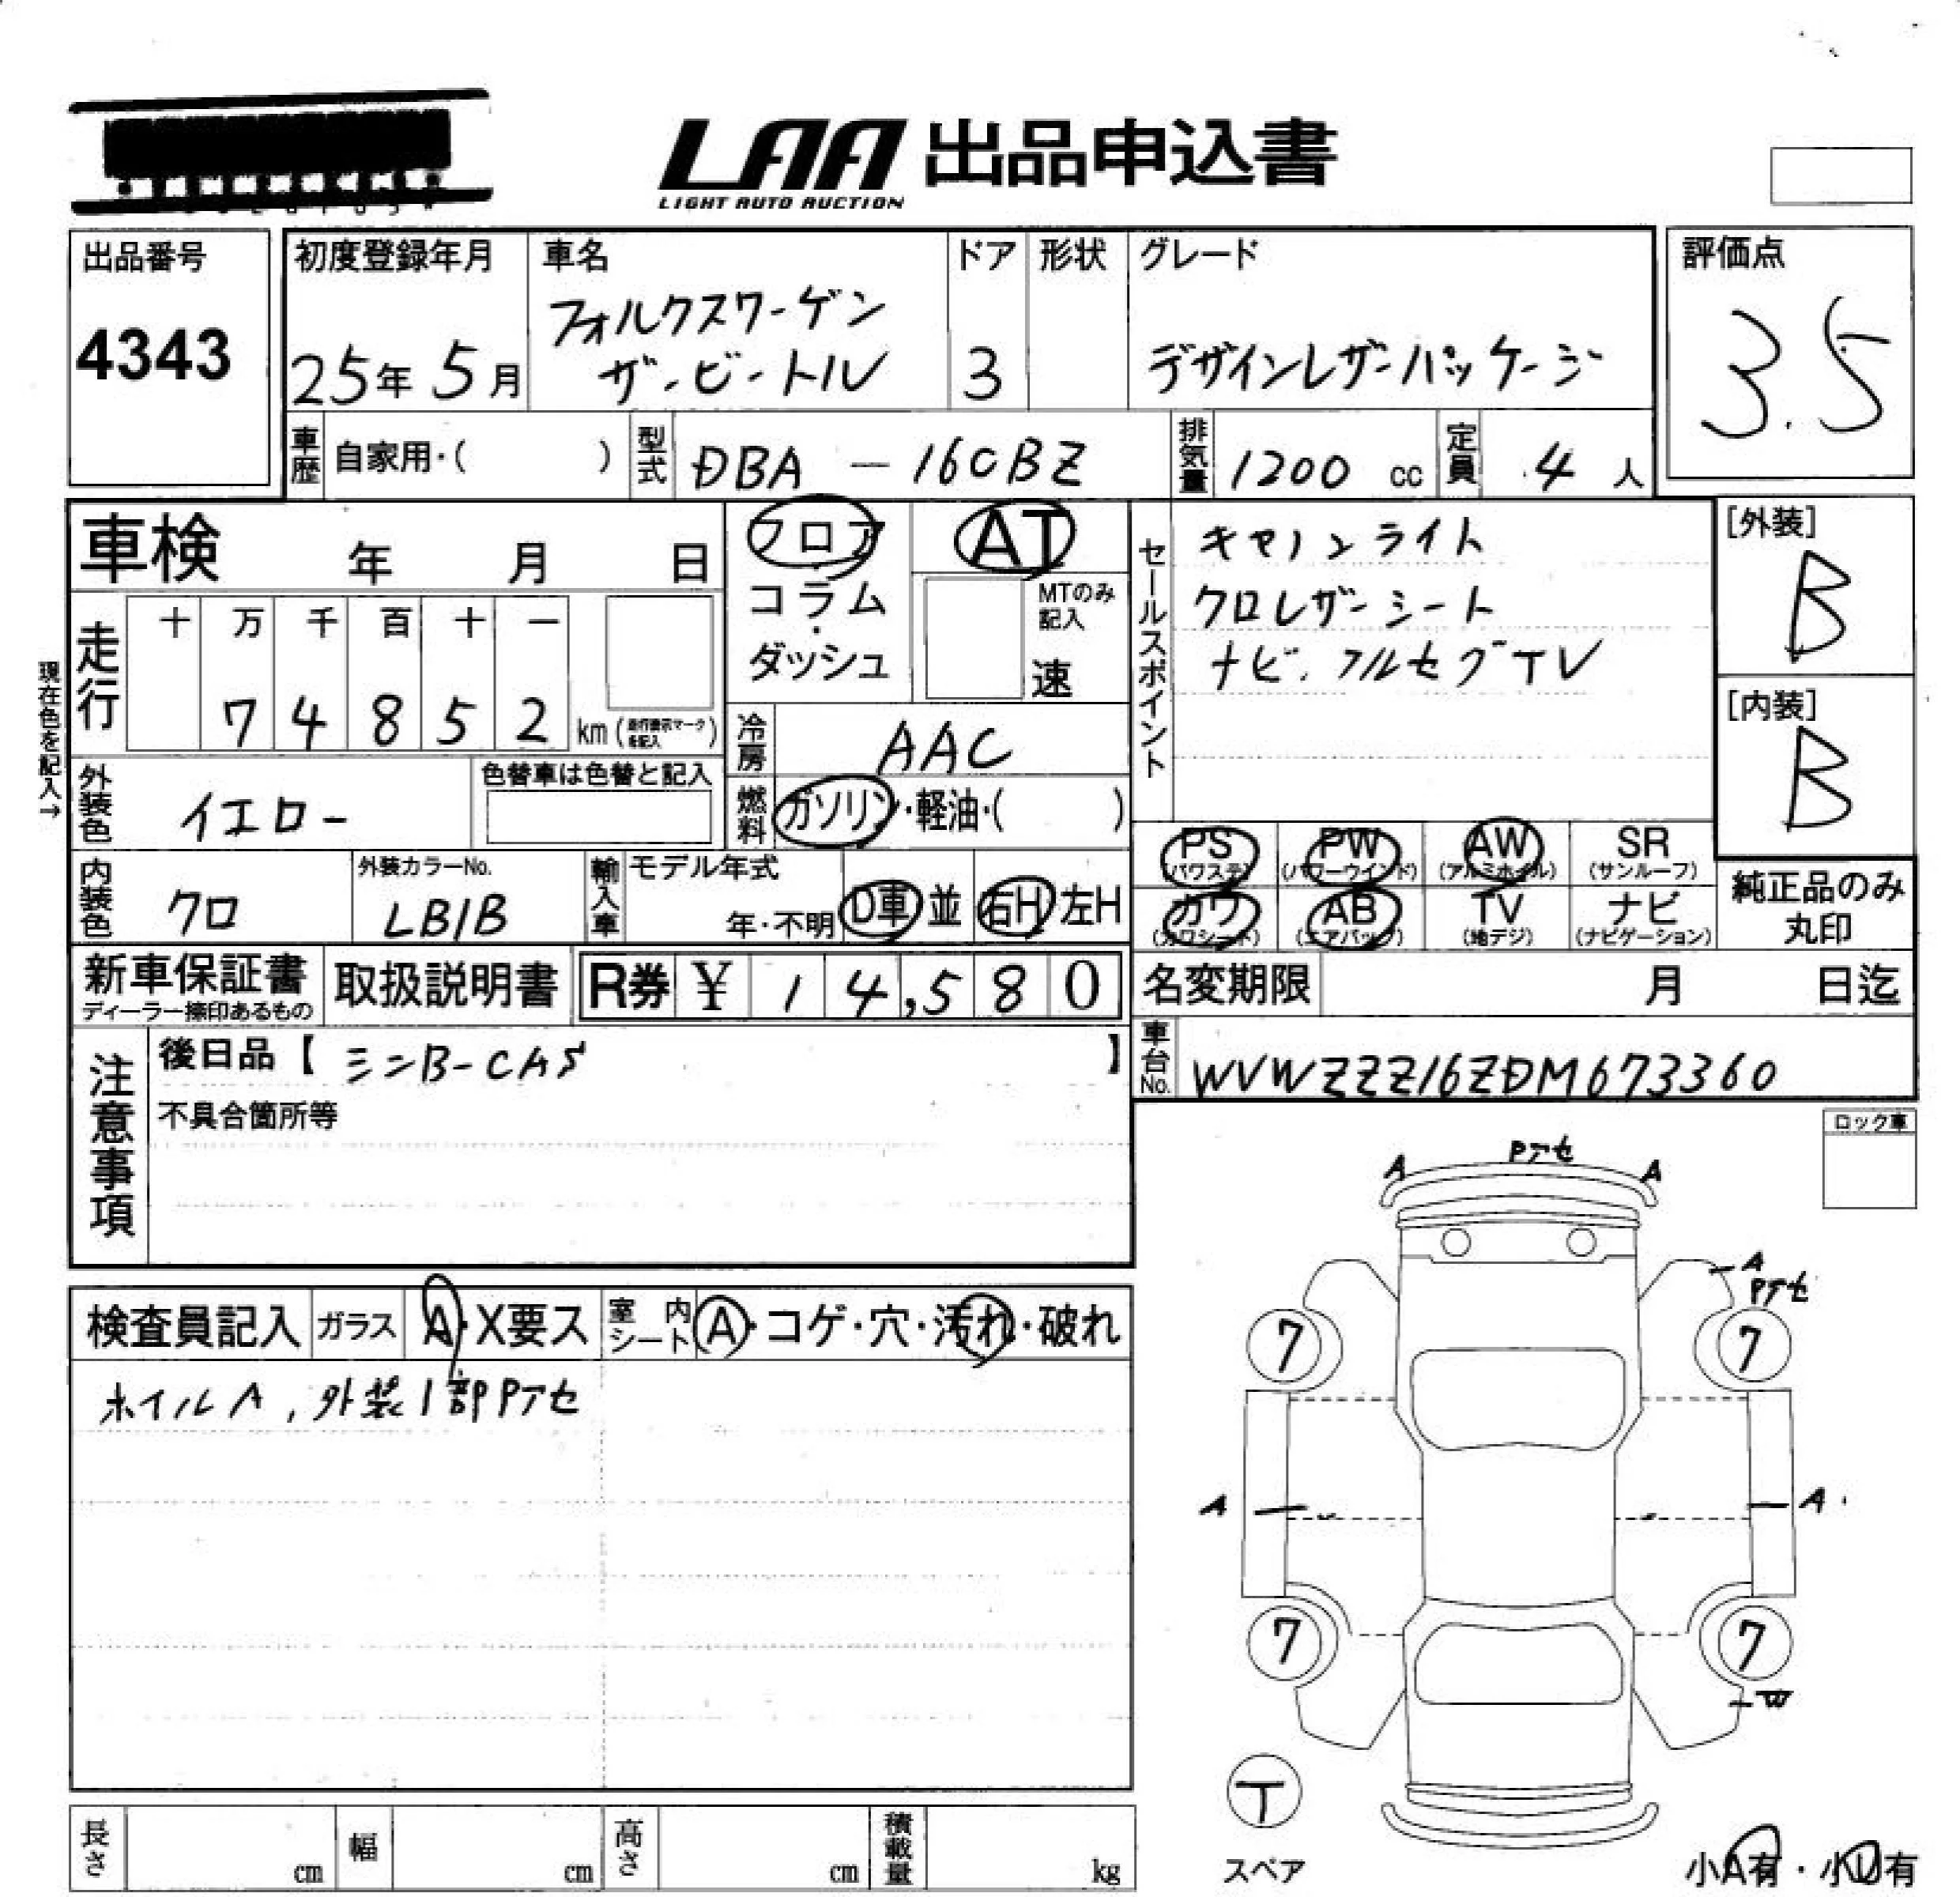 LAA 出品申込書
LIGHT AUTO AUCTION
出品番号
4343
初度登録年月
25年 5月
車名
フォルクスワーゲン
ザ・ビートル
ドア
3
形状
グレード
デザインレザーパッケージ
評価点
3.5
車歴 自家用・( )
型式 DBA - 16CBZ
排気量 1200 cc
定員 4 人
車検 年 月 日
走行 十 万 千 百 十 一
7 4 8 5 2 km
現在色を記入→
外装色 イエロー
色替車は色替と記入
内装色 クロ
外装カラーNo.
LB1B
フロア
コラム
・
ダッシュ
AT
MTのみ
記入
速
冷房 AAC
燃料 ガソリン・軽油・( )
輸入車 モデル年式
年・不明
D車 並
右H 左H
セールスポイント
キセノンライト
クロレザーシート
ナビ、フルセグTV
[外装]
B
[内装]
B
PS (パワステ)
PW (パワーウインド)
AW (アルミホイル)
SR (サンルーフ)
カワ (カワシート)
AB (エアバッグ)
TV (地デジ)
ナビ (ナビゲーション)
純正品のみ
丸印
新車保証書
ディーラー捺印あるもの
取扱説明書
R券 ¥ 14,580
名変期限 月 日迄
車台No. WVWZZZ16ZDM673360
注意事項
後日品【 ミニB-CAS 】
不具合箇所等
ロック車
検査員記入 ガラス A・X要ス 室内シート A・コゲ・穴・汚れ・破れ
ホイルA, 外装1部Pアセ
A Pアセ A
A
Pアセ
7 7
A A
7 7
W
T
スペア
小A有・小U有
長さ cm 幅 cm 高さ cm 積載量 kg